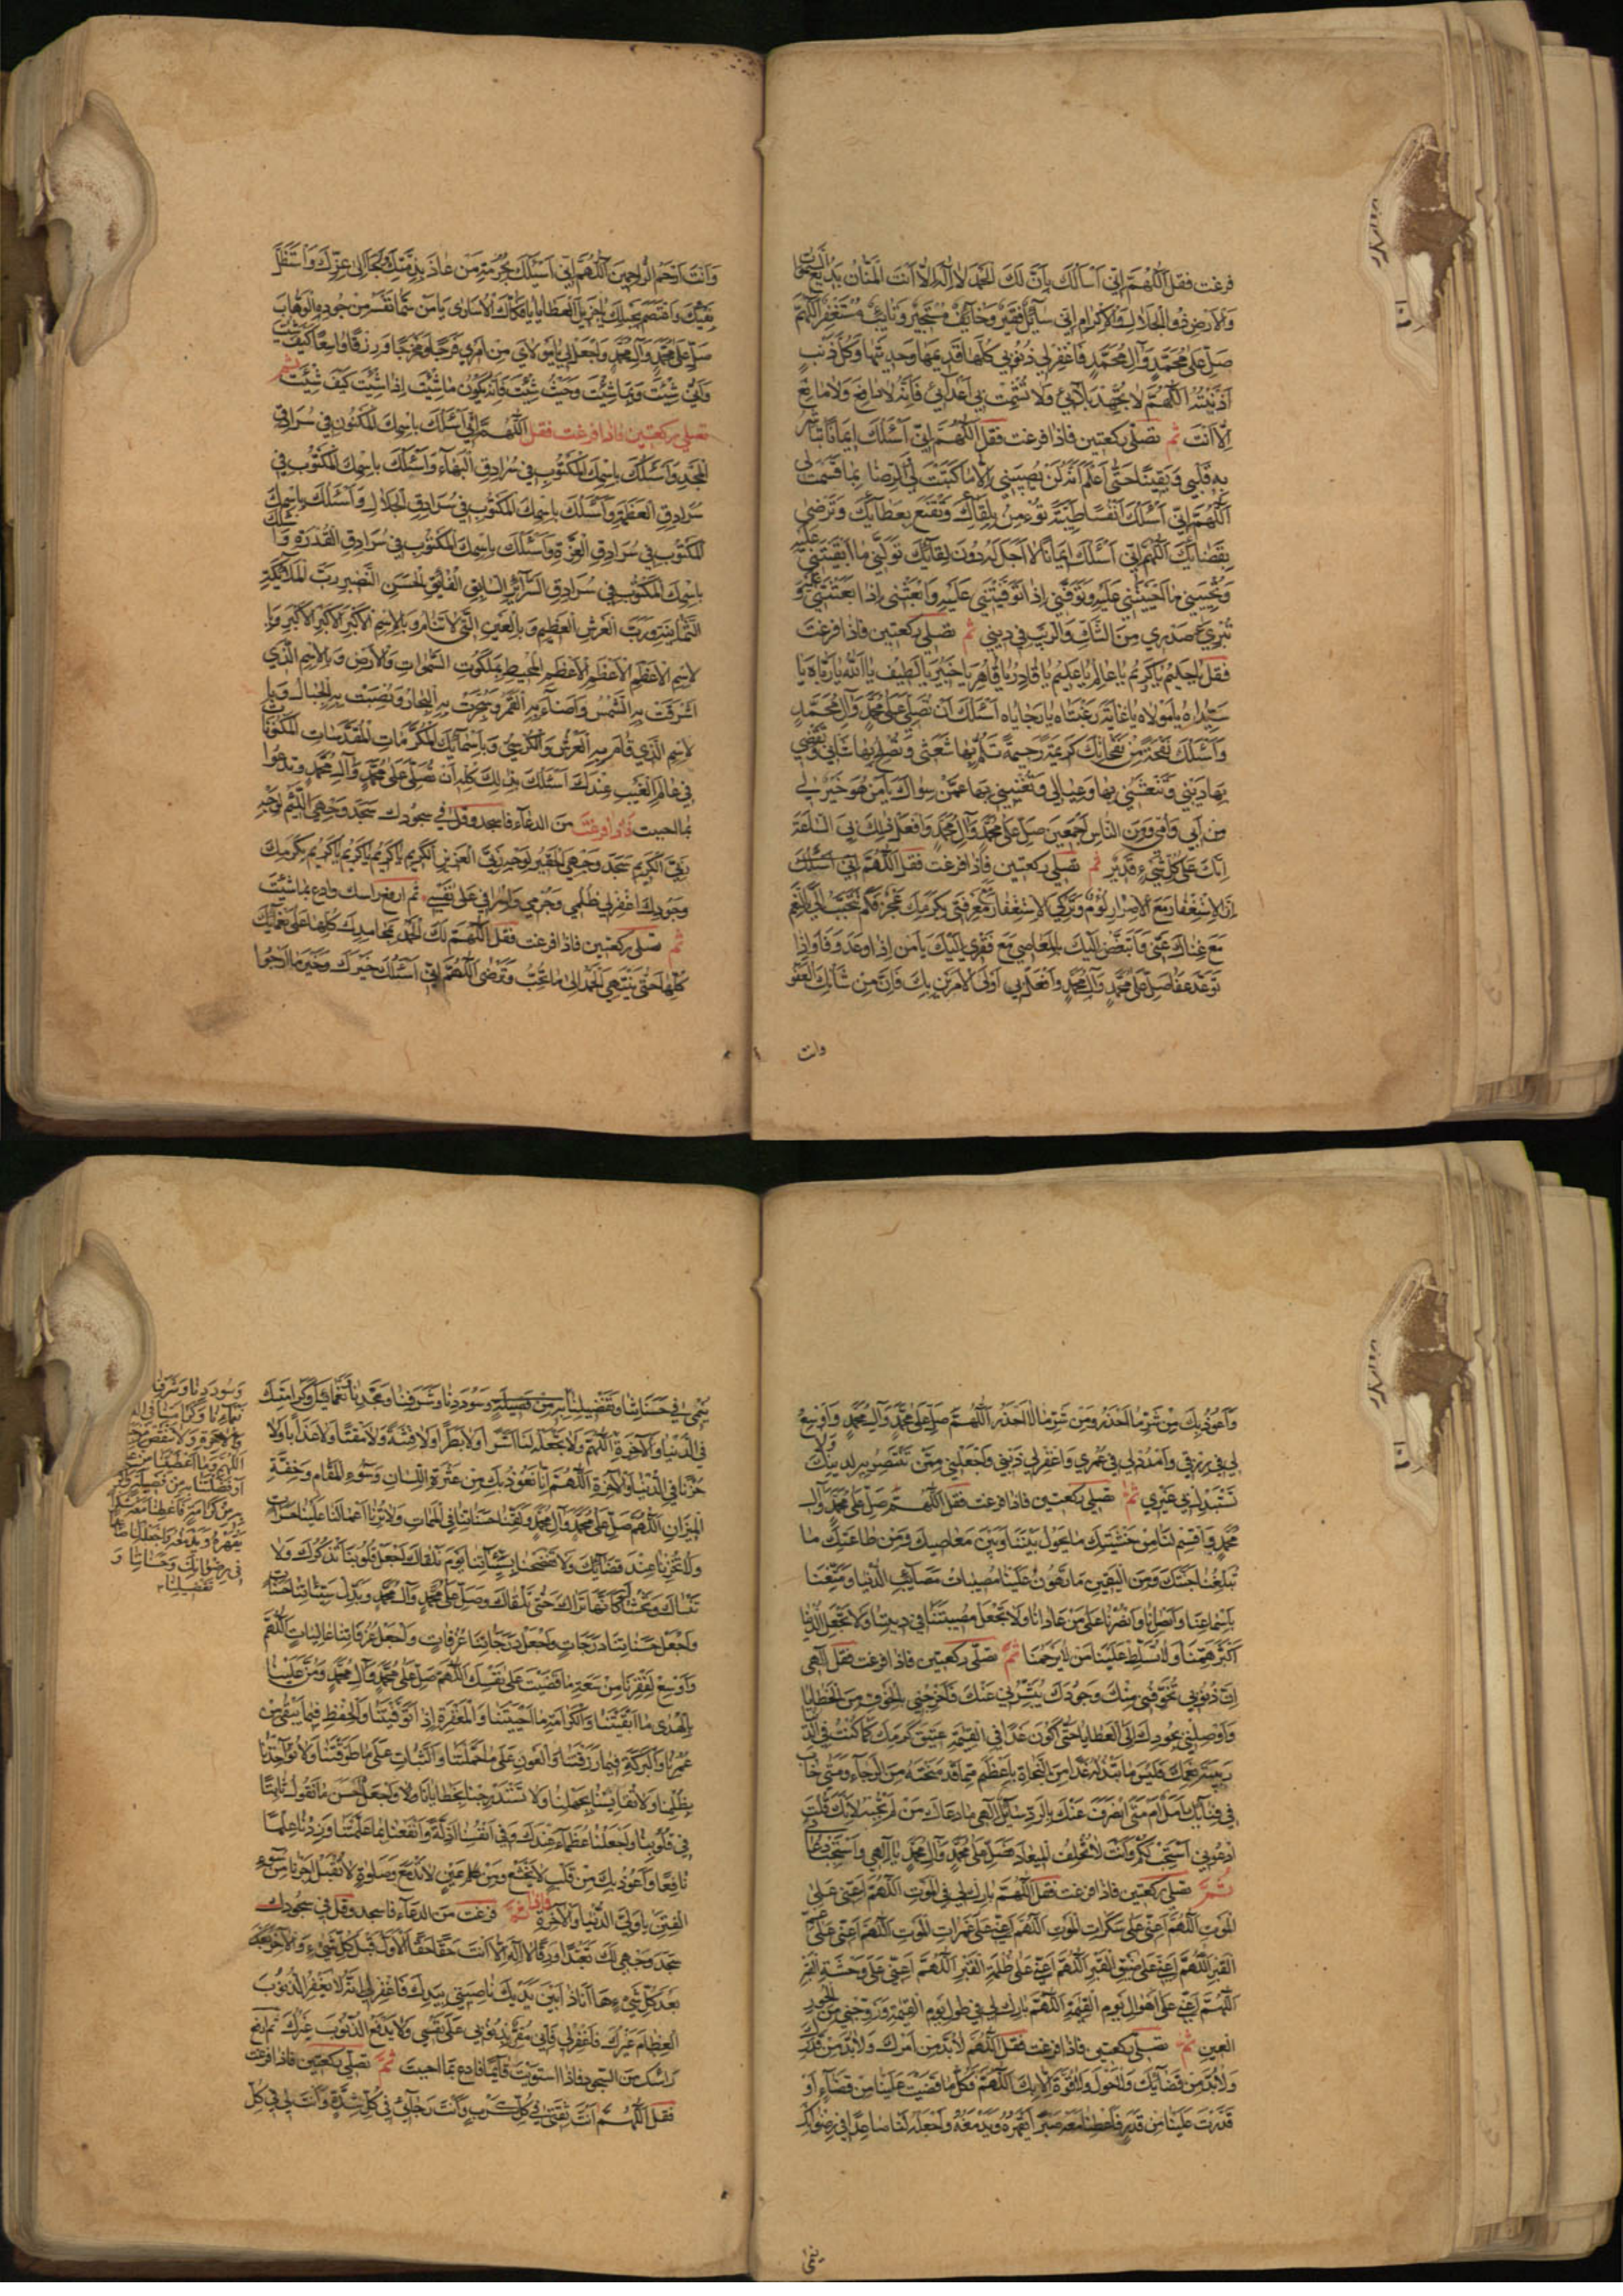 فرغت فقل اللهم اني اسألك بان لك الحمد لا اله الا انت المنان بديع السموات
والارض ذو الجلال والاكرام اني سائل فقير وخائف مستجير وتائب مستغفر اللهم
صل على محمد وآل محمد فاغفر لي ذنوبي كلها قديمها وحديثها وكل ذنب
اذنبته اللهم لا تجهد بلائي ولا تشمت بي اعدائي فانه لا دافع ولا مانع
الا انت ثم تصلي ركعتين فاذا فرغت فقل اللهم اني اسئلك ايمانا تباشر
به قلبي ويقينا حتى اعلم انه لن يصيبني الا ما كتبت لي والرضا بما قسمت لي
اللهم اني اسئلك نفسا طيبة تؤمن بلقائك وتقنع بعطائك وترضى
بقضائك اللهم اني اسئلك ايمانا لا اجل له دون لقائك تولني ما ابقيتني عليه
وتحييني ما احييتني عليه وتوفني اذا توفيتني عليه وابعثني اذا بعثتني عليه و
تبرئ صدري من الشك والريب في ديني ثم تصلي ركعتين فاذا فرغت
فقل يا حليم يا كريم يا عالم يا عليم يا قادر يا قاهر يا خبير يا لطيف يا الله يا رباه يا
سيداه يا مولاه يا غاية رغبتاه يا رجاياه اسئلك ان تصلي على محمد وآل محمد
واسئلك نفحة من نفحاتك كريمة رحيمة تلم بها شعثي وتصلح بها شاني وتقضي
بها ديني وتنعشني بها وعيالي وتغنيني بها عمن سواك يا من هو خير لي
من ابي وامي ومن الناس اجمعين صل على محمد وآل محمد وافعل ذلك بي الساعة
انك على كل شيء قدير ثم تصلي ركعتين فاذا فرغت فقل اللهم اني اسئلك
ان الاستغفار مع الاصرار لؤم وتركي الاستغفار مع معرفتي بكرمك عجز فكم تتحبب الي بالنعم
مع غناك عني واتبغض اليك بالمعاصي مع فقري اليك يا من اذا وعد وفا واذا
توعد عفا صل على محمد وآل محمد وافعل بي اولى الامرين بك فان من شانك العفو
وانت
وانت ارحم الراحمين اللهم اني اسئلك بحرمة من عاذ بذمتك ولجأ الى عزك واستظل
بفيئك واعتصم بحبلك يا جزيل العطايا يا فكاك الاسارى يا من سما نفسه من جوده الوهاب
صل على محمد وآل محمد واجعل لي يا مولاي من امري فرجا ومخرجا ورزقا واسعا كيف شئت
وانى شئت وبما شئت وحيث شئت فانه يكون ما شئت اذا شئت كيف شئت ثم
تصلي ركعتين فاذا فرغت فقل اللهم اني اسئلك باسمك المكنون في سرادق
المجد واسئلك باسمك المكتوب في سرادق البهاء واسئلك باسمك المكتوب في
سرادق العظمة واسئلك باسمك المكتوب في سرادق الجلال واسئلك باسمك
المكتوب في سرادق العزة واسئلك باسمك المكتوب في سرادق القدرة واسئلك
باسمك المكتوب في سرادق السرائر السابق الفائق الحسن النضير رب الملائكة
الثمانية ورب العرش العظيم وبالعين التي لا تنام وبالاسم الاكبر الاكبر الاكبر وبا
لاسم الاعظم الاعظم الاعظم المحيط بملكوت السموات والارض وبالاسم الذي
اشرقت به الشمس واضاء به القمر وسجرت به البحار ونصبت به الجبال وبا
لاسم الذي قام به العرش والكرسي وباسمائك المكرمات المقدسات المكنونات
في عالم الغيب عندك اسئلك بذلك كله ان تصلي على محمد وآل محمد وتدعوا
بما احببت فاذا فرغت من الدعاء فاسجد وقل في سجودك سجد وجهي اللئيم لوجه
ربي الكريم سجد وجهي الحقير لوجه ربي العزيز الكريم يا كريم يا كريم يا كريم بكرمك
وجودك اغفر لي ظلمي وجرمي واسرافي على نفسي ثم ارفع راسك وادع بما شئت
ثم تصلي ركعتين فاذا فرغت فقل اللهم لك الحمد بمحامدك كلها على نعمائك
كلها حتى ينتهي الحمد الى ما تحب وترضى اللهم اني اسئلك خيرك وخير ما ارجوا
واعوذ بك من شر ما احذر ومن شر ما لا احذر اللهم صل على محمد وآل محمد واوسع
لي في رزقي وامدد لي في عمري واغفر لي ذنبي واجعلني ممن تنتصر به لدينك ولا
تستبدل بي غيري ثم تصلي ركعتين فاذا فرغت فقل اللهم صل على محمد وآل
محمد واقسم لنا من خشيتك ما يحول بيننا وبين معاصيك ومن طاعتك ما
تبلغنا جنتك ومن اليقين ما تهون علينا مصيبات مصائب الدنيا ومتعنا
باسماعنا وابصارنا وانصرنا على من عادانا ولا تجعل مصيبتنا في ديننا ولا تجعل الدنيا
اكبر همنا ولا تسلط علينا من لا يرحمنا ثم تصلي ركعتين فاذا فرغت فقل الهي
ان ذنوبي تخوفني منك وجودك يبشرني عنك فاخرجني بالخوف من الخطايا
واوصلني بجودك الى العطايا حتى اكون غدا في القيمة عتيق كرمك كما كنت في الد
ربيب نعمك فليس ما تبذله غدا من النجاة باعظم مما قد منحته من الرجاء ومتى خاب
في فنائك آمل ام متى انصرف عنك بالرد سائل الهي ما دعاك من لم تجبه لانك قلت
ادعوني استجب لكم وانت لا تخلف الميعاد فصل على محمد وآل محمد يا الهي واستجب دعائي
ثم تصلي ركعتين فاذا فرغت فقل اللهم بارك لي في الموت اللهم اعني على
الموت اللهم اعني على سكرات الموت اللهم اعني على غمرات الموت اللهم اعني على غم
القبر اللهم اعني على ضيق القبر اللهم اعني على ظلمة القبر اللهم اعني على وحشة القبر
اللهم اعني على اهوال يوم القيمة اللهم بارك لي في طول يوم القيمة وزوجني من الحور
العين ثم تصلي ركعتين فاذا فرغت فقل اللهم لا بد من امرك ولا بد من قدرك
ولا بد من قضائك ولا حول ولا قوة الا بك اللهم فكل ما قضيت علينا من قضاء او
قدرت علينا من قدر فاعطنا معه صبرا يقهره ويدمغه واجعله لنا صاعدا في رضوانك
ينمى
ينمي في حسناتنا وتفضيلنا وسوددنا وشرفنا ومجدنا ونعمائك وكرامتك
في الدنيا والآخرة اللهم ولا تجعله لنا اشرا ولا بطرا ولا فتنة ولا مقتا ولا عذابا ولا
خزيا في الدنيا والآخرة اللهم انا نعوذ بك من عثرة اللسان وسوء المقام وخفة
الميزان اللهم صل على محمد وآل محمد ولقنا حسناتنا في الممات ولا ترنا اعمالنا علينا حسرات
ولا تخزنا عند قضائك ولا تفضحنا بسيئاتنا يوم نلقاك واجعل قلوبنا تذكرك ولا
تنساك وتخشاك كانها تراك حتى تلقاك وصل على محمد وآل محمد وبدل سيئاتنا حسنات
واجعل حسناتنا درجات واجعل درجاتنا غرفات واجعل غرفاتنا عاليات اللهم
واوسع لفقرنا من سعة ما قضيت على نفسك اللهم صل على محمد وآل محمد ومن علينا
بالهدى ما ابقيتنا والكرامة ما احييتنا والمغفرة اذا توفيتنا والحفظ فيما يبقى من
عمرنا والبركة فيما رزقتنا والعون على ما حملتنا والثبات على ما طوقتنا ولا تؤاخذنا
بظلمنا ولا تقايسنا بجهلنا ولا تستدرجنا بخطايانا واجعل احسن ما نقول ثابتا
في قلوبنا واجعلنا عظماء عندك وفي انفسنا اذلة وانفعنا بما علمتنا وزدنا علما
نافعا واعوذ بك من قلب لا يخشع ومن عين لا تدمع وصلوة لا تقبل اجرنا من سوء
الفتن يا ولي الدنيا والآخرة فاذا فرغت من الدعاء فاسجد وقل في سجودك
سجد وجهي لك تعبدا ورقا لا اله الا انت حقا حقا الاول قبل كل شيء والآخر
بعد كل شيء ها انا ذا بين يديك ناصيتي بيدك فاغفر لي انه لا يغفر الذنوب
العظام غيرك فاغفر لي فاني مقر بذنوبي على نفسي ولا يدفع الذنوب غيرك ثم ارفع
راسك من السجود فاذا استويت قائما فادع بما احببت ثم تصلي ركعتين فاذا فرغت
فقل اللهم انت ثقتي في كل كرب وانت رجائي في كل شدة وانت لي في كل
وسوددنا وشرفنا
اللهم وما اعطيتنا من
يقهره ويدمغه واجعله لنا
في رضوانك وحسناتنا و
تفضيلنا
١٠٩